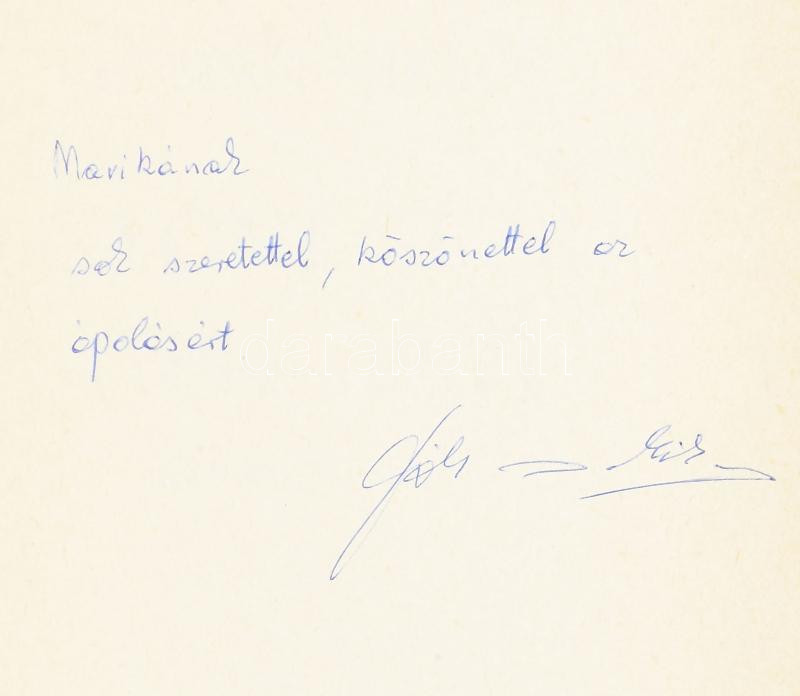 Marikának
sok szeretettel, köszönettel az
ápolásért
darabanth